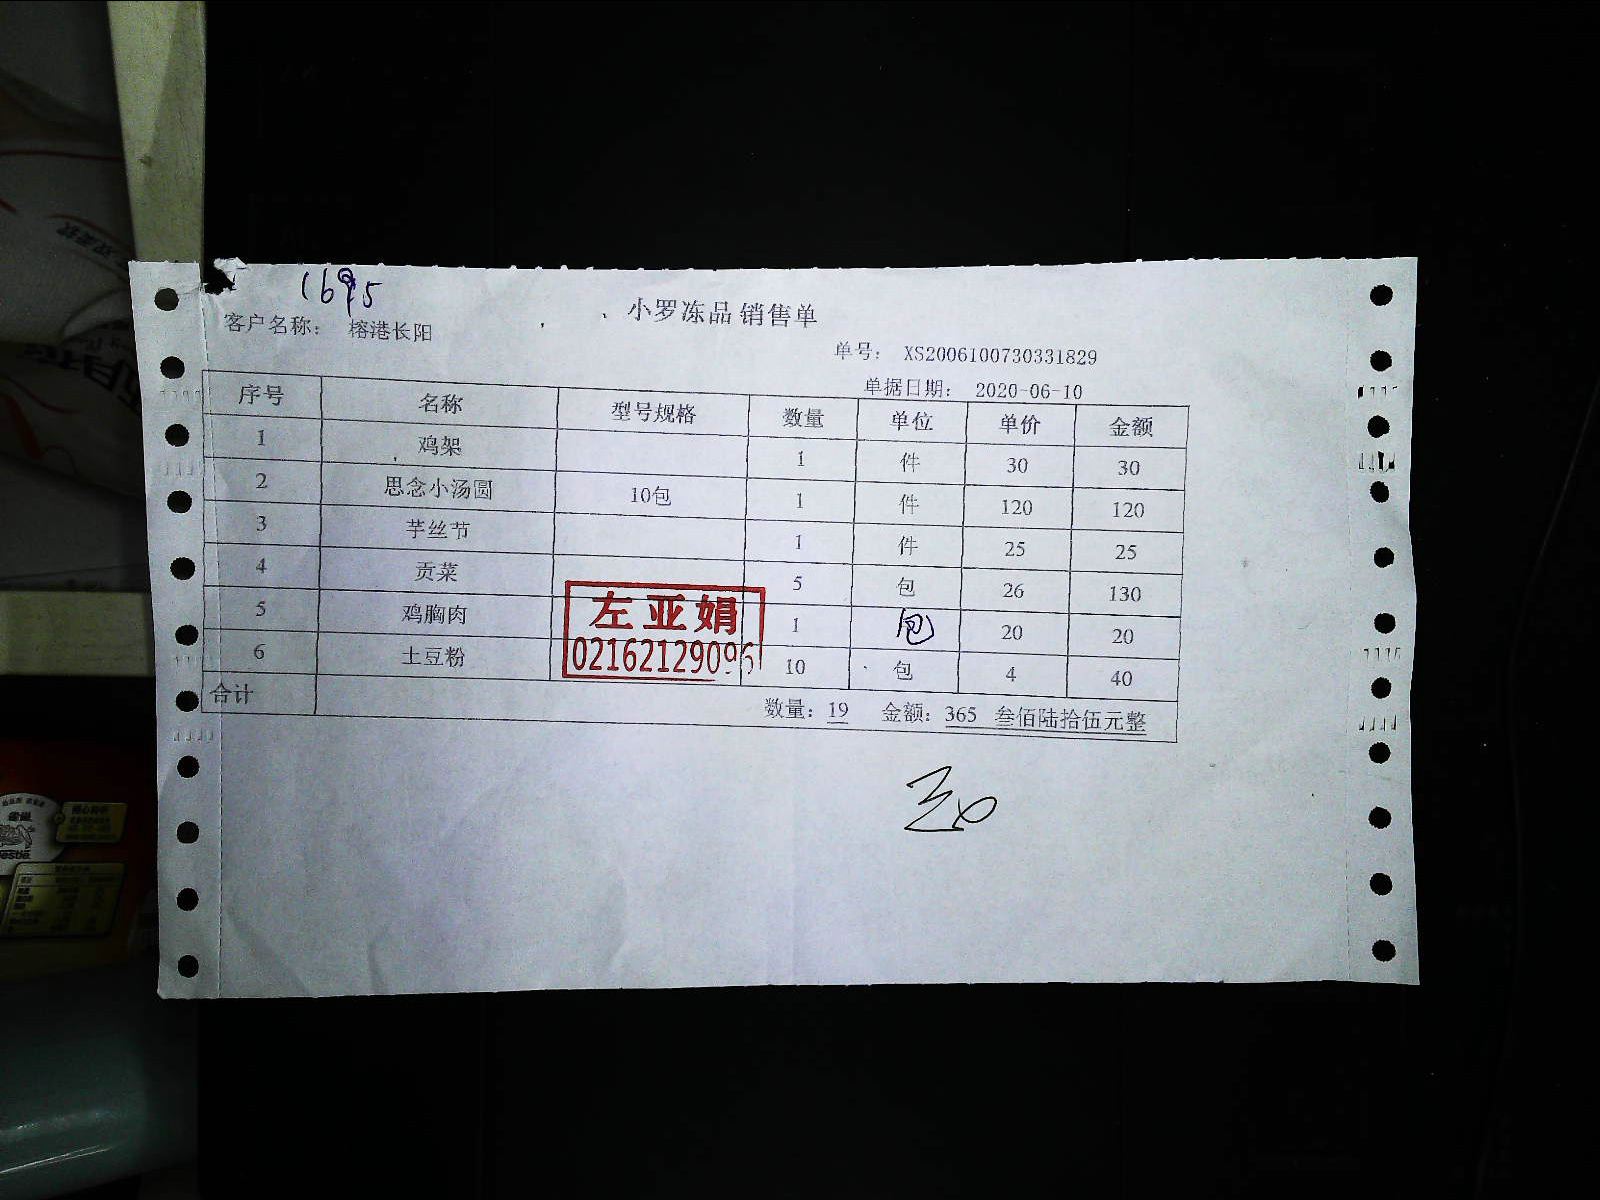 1695
小罗冻品 销售单
客户名称： 榕港长阳
单号： XS2006100730331829
单据日期： 2020-06-10
序号 名称 型号规格 数量 单位 单价 金额
1 鸡架 1 件 30 30
2 思念小汤圆 10包 1 件 120 120
3 芋丝节 1 件 25 25
4 贡菜 5 包 26 130
5 鸡胸肉 1 包 20 20
6 土豆粉 10 包 4 40
左亚娟
02162129096
合计 数量：19 金额：365 叁佰陆拾伍元整